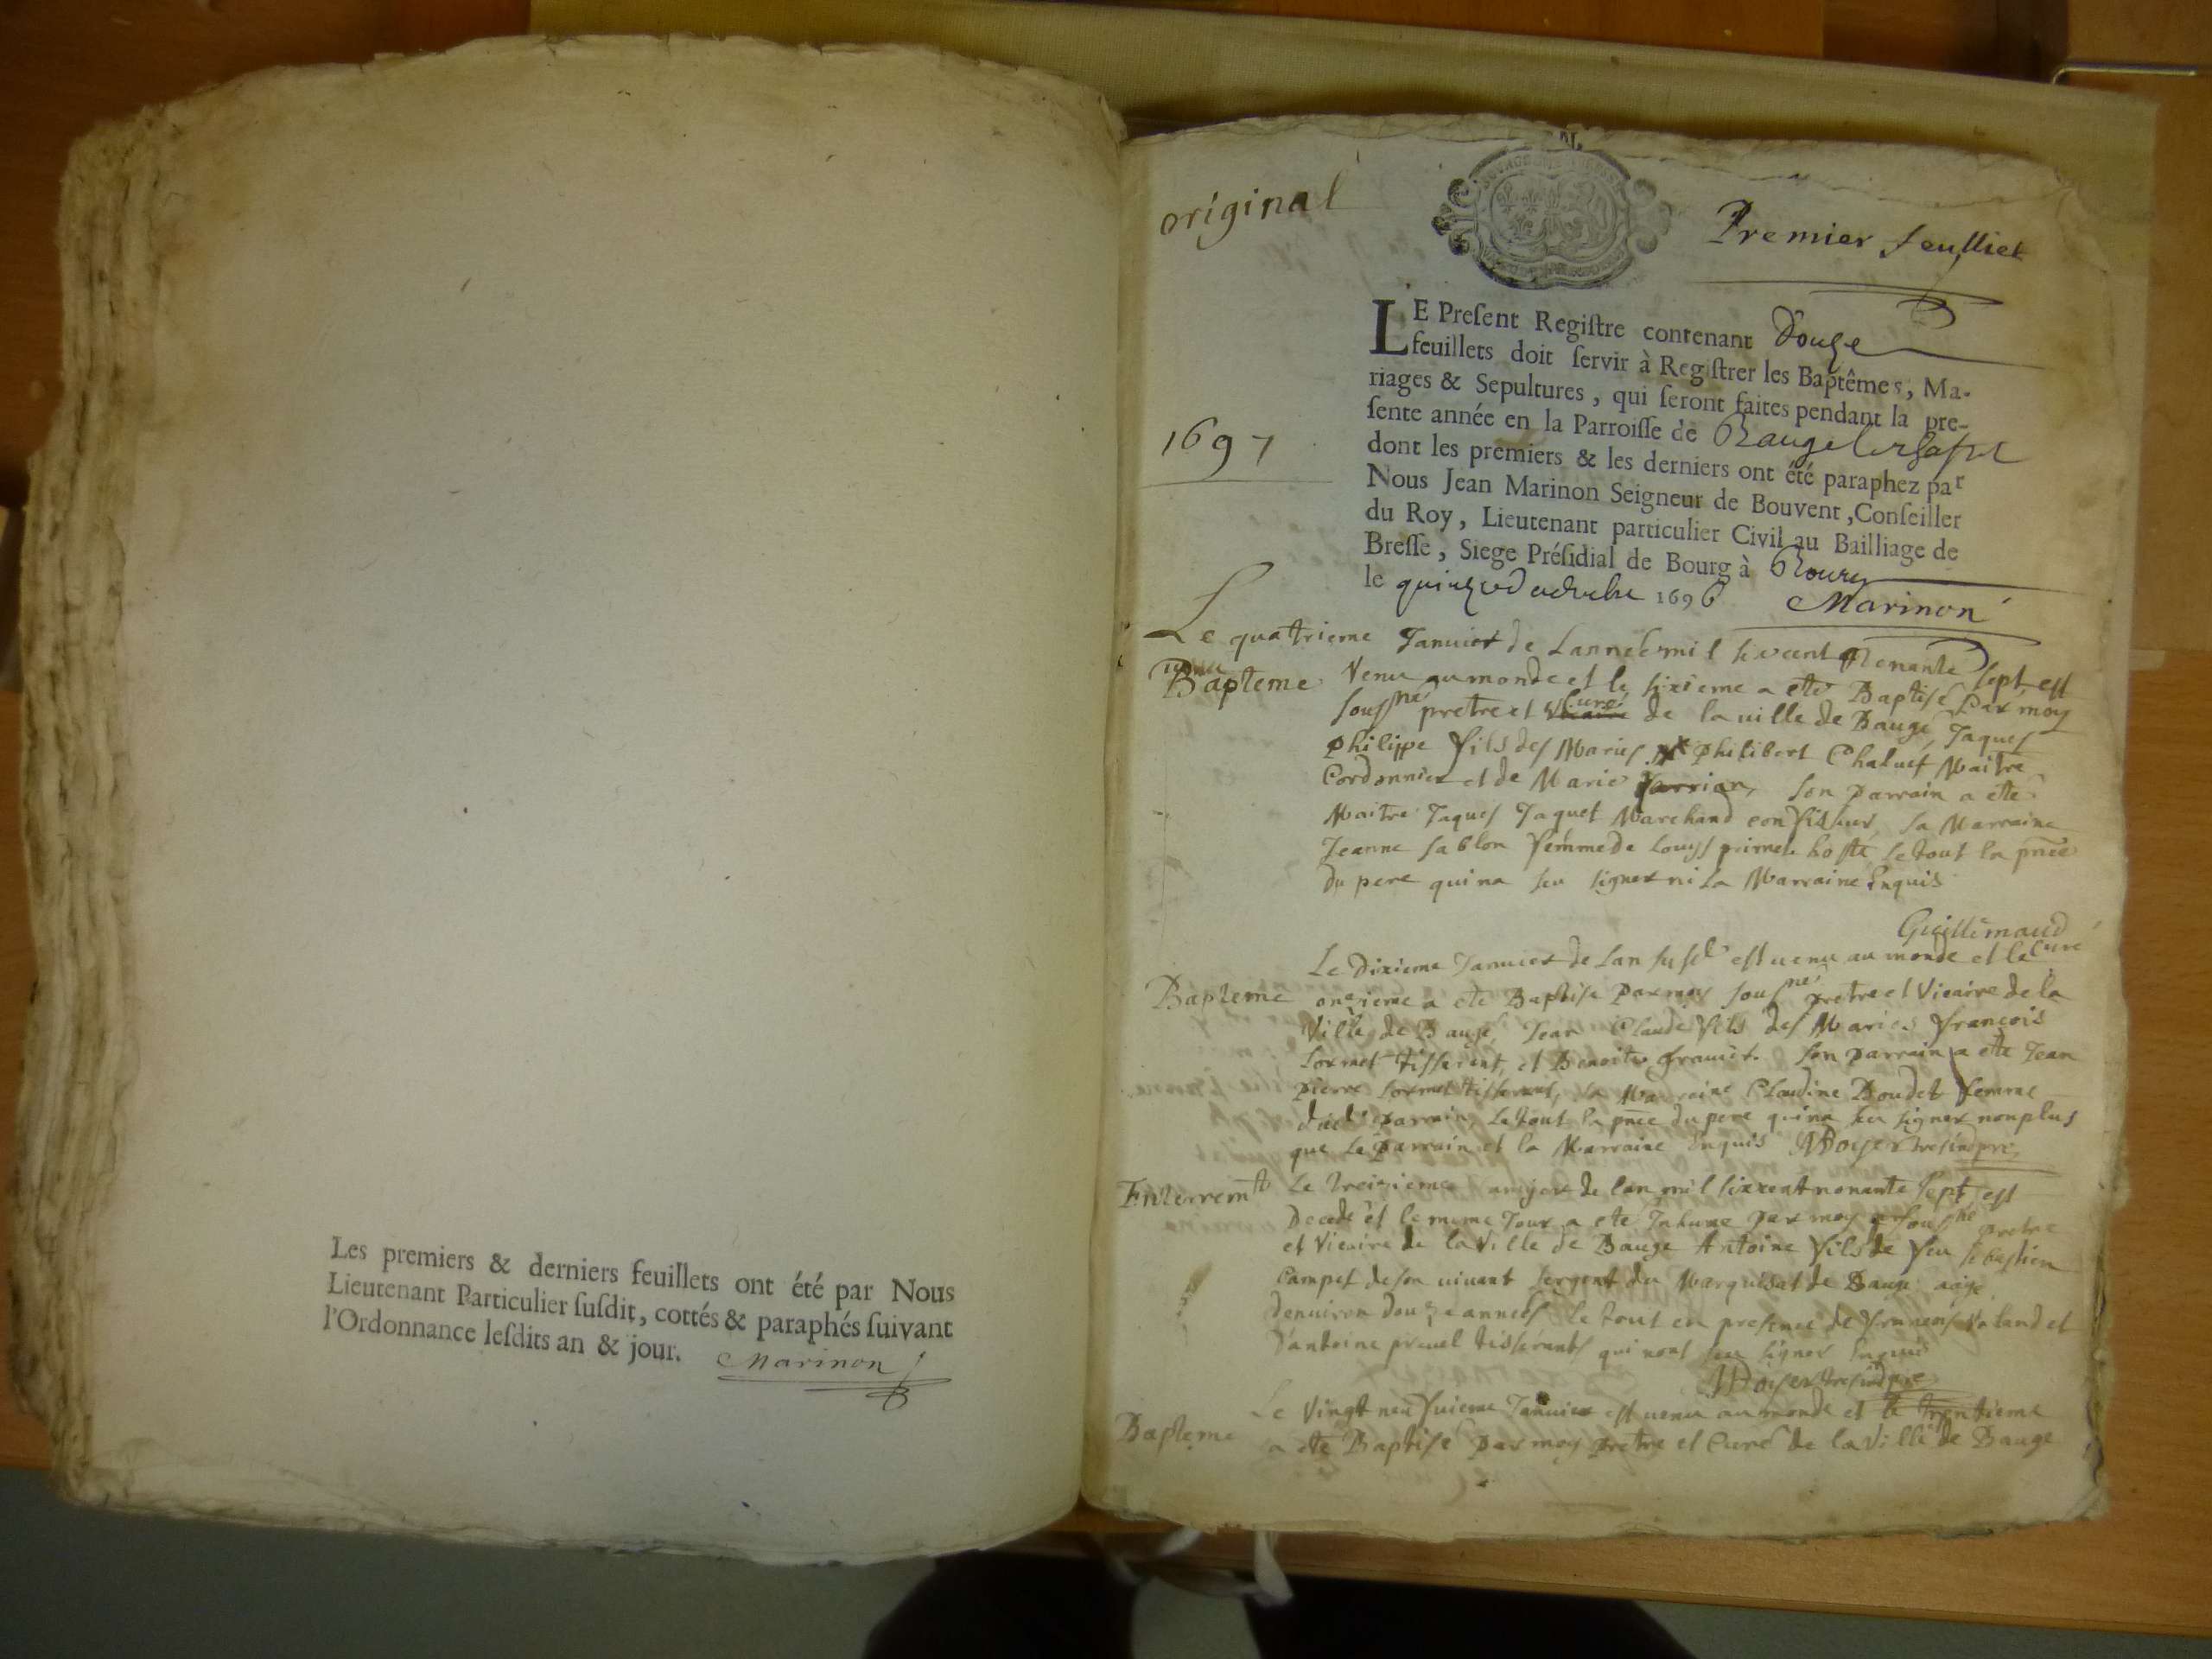 Les premiers & derniers feuillets ont été par Nous
Lieutenant Particulier ſuſdit, cottés & paraphés ſuivant
l'Ordonnance leſdits an & jour. Marinon
original
Premier feuillet
LE Preſent Regiſtre contenant Douze
feuillets doit ſervir à Regiſtrer les Baptêmes, Ma-
riages & Sepultures, qui ſeront faites pendant la pre-
ſente année en la Parroiſſe de Baugé
1697
dont les premiers & les derniers ont été paraphez par
Nous Jean Marinon Seigneur de Bouvent, Conſeiller
du Roy, Lieutenant particulier Civil au Bailliage de
Breſſe, Siege Préſidial de Bourg à Bourg
le 1696 Marinon
Le quatrieme Januier de Lannee mil sixcent Nonante sept est
Bapteme Venu au monde et le sixieme a ete Baptisé Par moy
sousné pretre et vicaire Curé de la uille de Baugé, Jaques
philippe fils des Mariés philibert Chaluet Maitre
Cordonnier et de Marie son parrain a ete
Maitre Jaques Jaquet Marchand sa Marraine
Jeanne sablon femme de Louys hoste le tout en pnce
du pere qui na seu signer ni la Marraine Enquis
Guillemaud
curé
Le Dixieme Januier de Lan susd est uenu au monde et le
Bapteme onzieme a ete Baptisé Par moy sousné pretre et Vicaire de la
Ville de Baugé, Jean Claude fils des Mariés françois
Lormet tisserent, et Benoite son parrain a ete Jean
pierre Lormet tisserent, sa Marraine Claudine Boudet femme
dud parrain, Le tout en pnce du pere qui na seu signer non plus
que Le parrain et la Marraine Enquis
Enterremt Le treizieme de lan mil sixcent nonante sept est
Decedé et le meme Jour a ete Inhumé par moy sousné pretre
et Vicaire de la Ville de Baugé Antoine fils de feu sebastien
de son uiuant sergent du Marquisat de Baugé aagé
denuiron douze annees le tout en presence de et
Dantoine tisserants qui nont seu signer Enquis
Le Vingt neufuieme Januier est uenu au monde et le trentieme
Bapteme a ete Baptisé par moy pretre et Curé de la Ville de Baugé